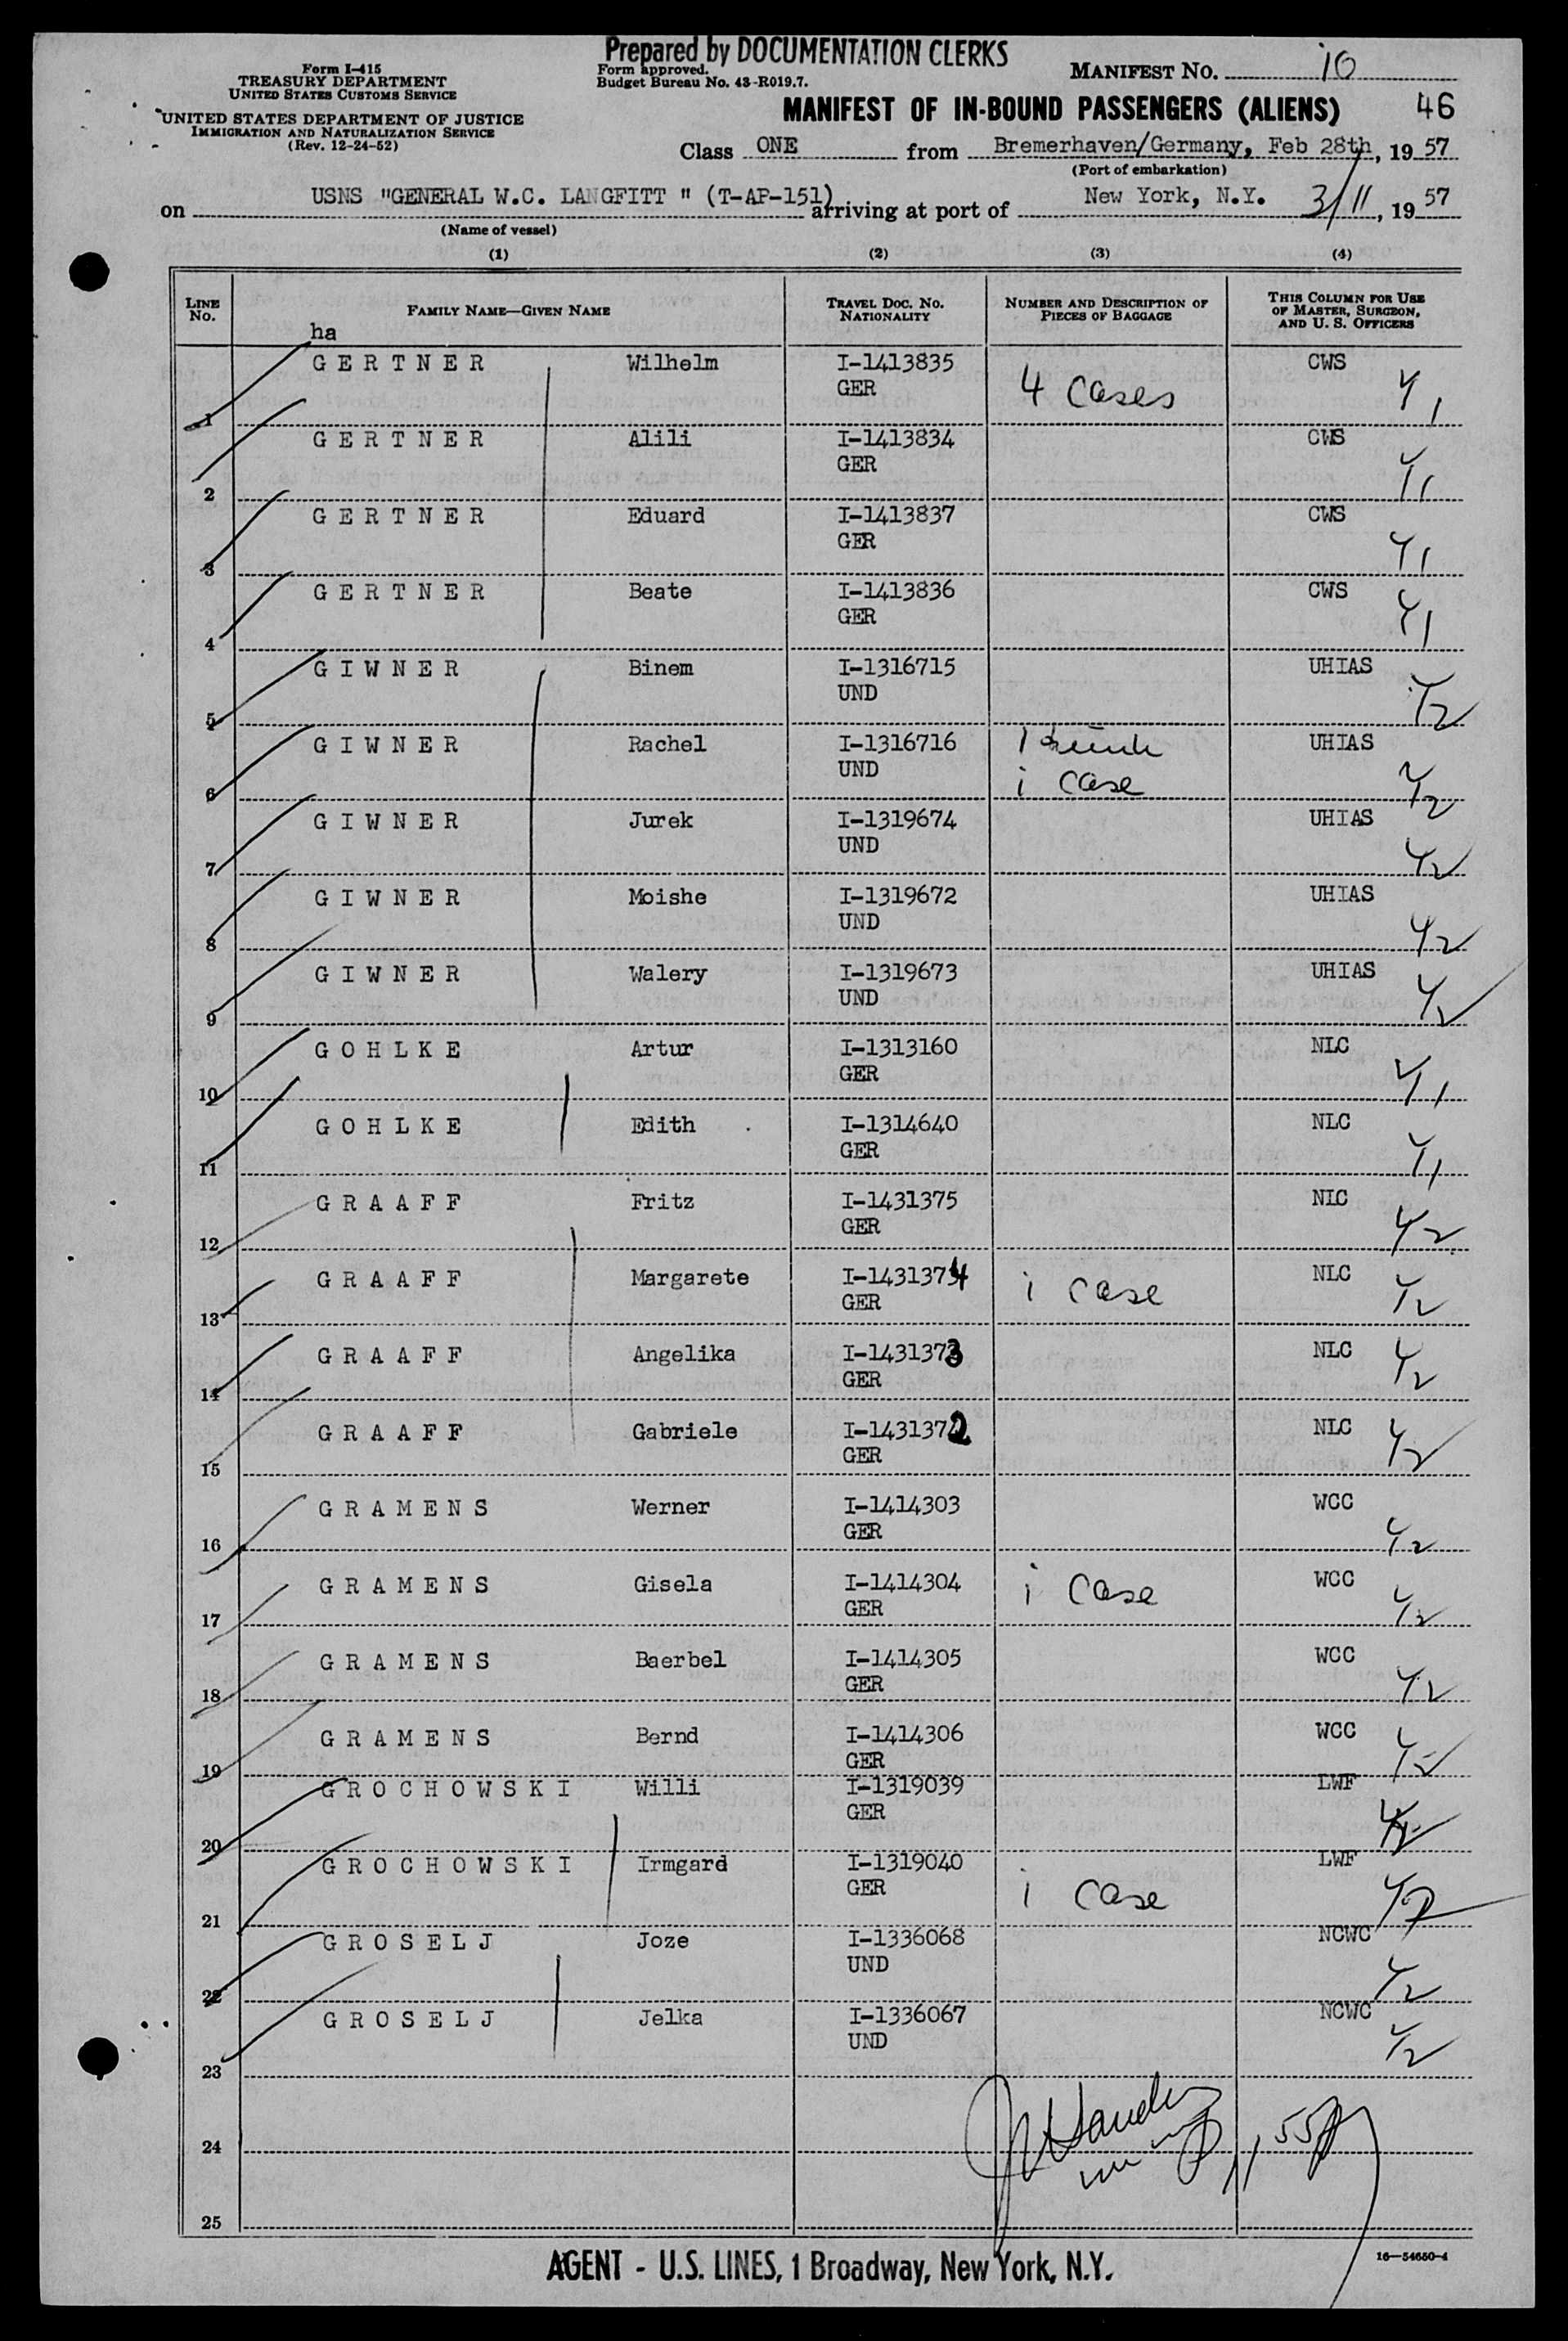 Prepared by DOCUMENTATION CLERKS
Form I-415
TREASURY DEPARTMENT
UNITED STATES CUSTOMS SERVICE
UNITED STATES DEPARTMENT OF JUSTICE
IMMIGRATION AND NATURALIZATION SERVICE
(Rev. 12-24-52)
Form approved.
Budget Bureau No. 43-R019.7.
MANIFEST No. 10
MANIFEST OF IN-BOUND PASSENGERS (ALIENS) 46
Class ONE from Bremerhaven/Germany, Feb 28th, 19 57
(Port of embarkation)
on USNS "GENERAL W.C. LANGFITT " (T-AP-151) arriving at port of New York, N.Y. 3/11, 19 57
(Name of vessel)
(1) (2) (3) (4)
LINE No. FAMILY NAME—GIVEN NAME TRAVEL DOC. NO. NATIONALITY NUMBER AND DESCRIPTION OF PIECES OF BAGGAGE THIS COLUMN FOR USE OF MASTER, SURGEON, AND U. S. OFFICERS
ha
1 GERTNER Wilhelm I-1413835 GER 4 Cases CWS 4/1
2 GERTNER Alili I-1413834 GER CWS 4/1
3 GERTNER Eduard I-1413837 GER CWS 4/1
4 GERTNER Beate I-1413836 GER CWS 4/1
5 GIWNER Binem I-1316715 UND UHIAS 4/2
6 GIWNER Rachel I-1316716 UND 1 trunk 1 case UHIAS 4/2
7 GIWNER Jurek I-1319674 UND UHIAS 4/2
8 GIWNER Moishe I-1319672 UND UHIAS 4/2
9 GIWNER Walery I-1319673 UND UHIAS 4/2
10 GOHLKE Artur I-1313160 GER NLC 4/1
11 GOHLKE Edith I-1314640 GER NLC 4/1
12 GRAAFF Fritz I-1431375 GER NLC 4/2
13 GRAAFF Margarete I-1431374 GER 1 case NLC 4/2
14 GRAAFF Angelika I-1431373 GER NLC 4/2
15 GRAAFF Gabriele I-1431372 GER NLC 4/2
16 GRAMENS Werner I-1414303 GER WCC 4/2
17 GRAMENS Gisela I-1414304 GER 1 Case WCC 4/2
18 GRAMENS Baerbel I-1414305 GER WCC 4/2
19 GRAMENS Bernd I-1414306 GER WCC 4/2
20 GROCHOWSKI Willi I-1319039 GER LWF 4/2
21 GROCHOWSKI Irmgard I-1319040 GER 1 case LWF 4/2
22 GROSELJ Joze I-1336068 UND NCWC 4/2
23 GROSELJ Jelka I-1336067 UND NCWC 4/2
24
25
AGENT - U.S. LINES, 1 Broadway, New York, N.Y.
16—54650-4